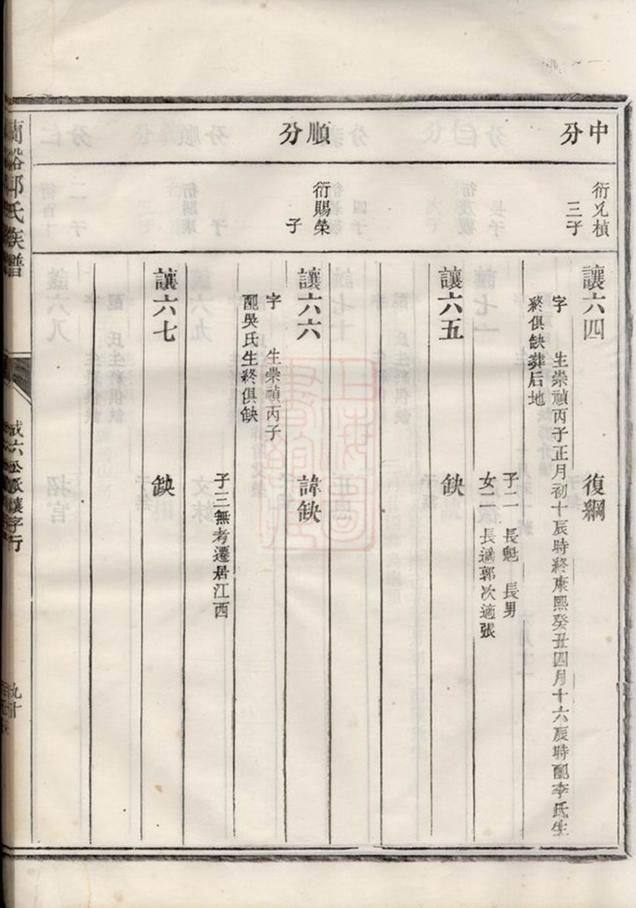 中分
衍兄楨
三子
讓六四 復綱
字 生崇禎丙子正月初十辰時終康熙癸丑四月十六辰時配李氏生
終俱缺葬后地
子二 長魁 長男
女二 長適郭次適張
讓六五 缺
順分
衍賜榮
子
讓六六 諱缺
字 生崇禎丙子
配吳氏生終俱缺
子三無考遷居江西
讓六七 缺
氏族譜
讓字行